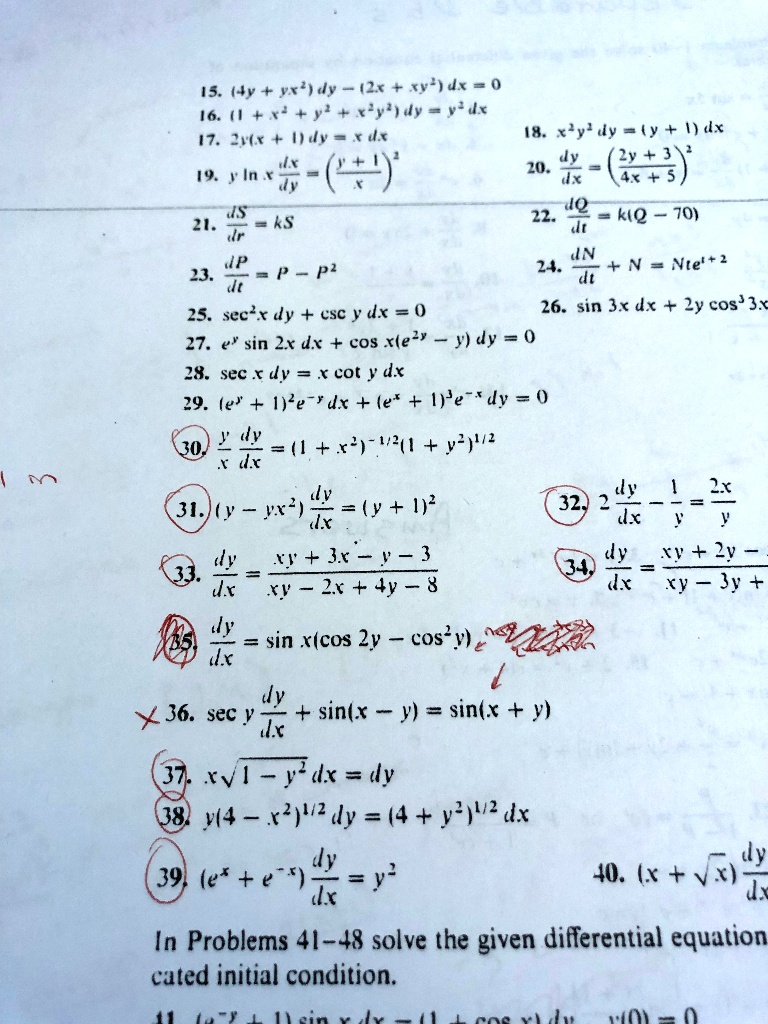 15. (4y + yx²) dy − (2x + xy²) dx = 0
16. (1 + x² + y² + x²y²) dy = y² dx
17. 2y(x + 1) dy = x dx
18. x²y² dy = (y + 1) dx
19. y ln x dx/dy = ((y + 1)/x)²
20. dy/dx = ((2y + 3)/(4x + 5))²
21. dS/dr = kS
22. dQ/dt = k(Q − 70)
23. dP/dt = P − P²
24. dN/dt + N = Nte^(t + 2)
25. sec²x dy + csc y dx = 0
26. sin 3x dx + 2y cos³ 3x
27. e^y sin 2x dx + cos x(e^(2y) − y) dy = 0
28. sec x dy = x cot y dx
29. (e^y + 1)²e^(−y) dx + (e^x + 1)³e^(−x) dy = 0
30. y/x dy/dx = (1 + x²)^(−1/2)(1 + y²)^(1/2)
31. (y − yx²) dy/dx = (y + 1)²
32. 2 dy/dx − 1/y = 2x/y
33. dy/dx = (xy + 3x − y − 3)/(xy − 2x + 4y − 8)
34. dy/dx = (xy + 2y −)/(xy − 3y +)
35. dy/dx = sin x(cos 2y − cos² y)
x 36. sec y dy/dx + sin(x − y) = sin(x + y)
37. x√(1 − y²) dx = dy
38. y(4 − x²)^(1/2) dy = (4 + y²)^(1/2) dx
39. (e^x + e^(−x)) dy/dx = y²
40. (x + √x) dy/dx
In Problems 41–48 solve the given differential equation
cated initial condition.